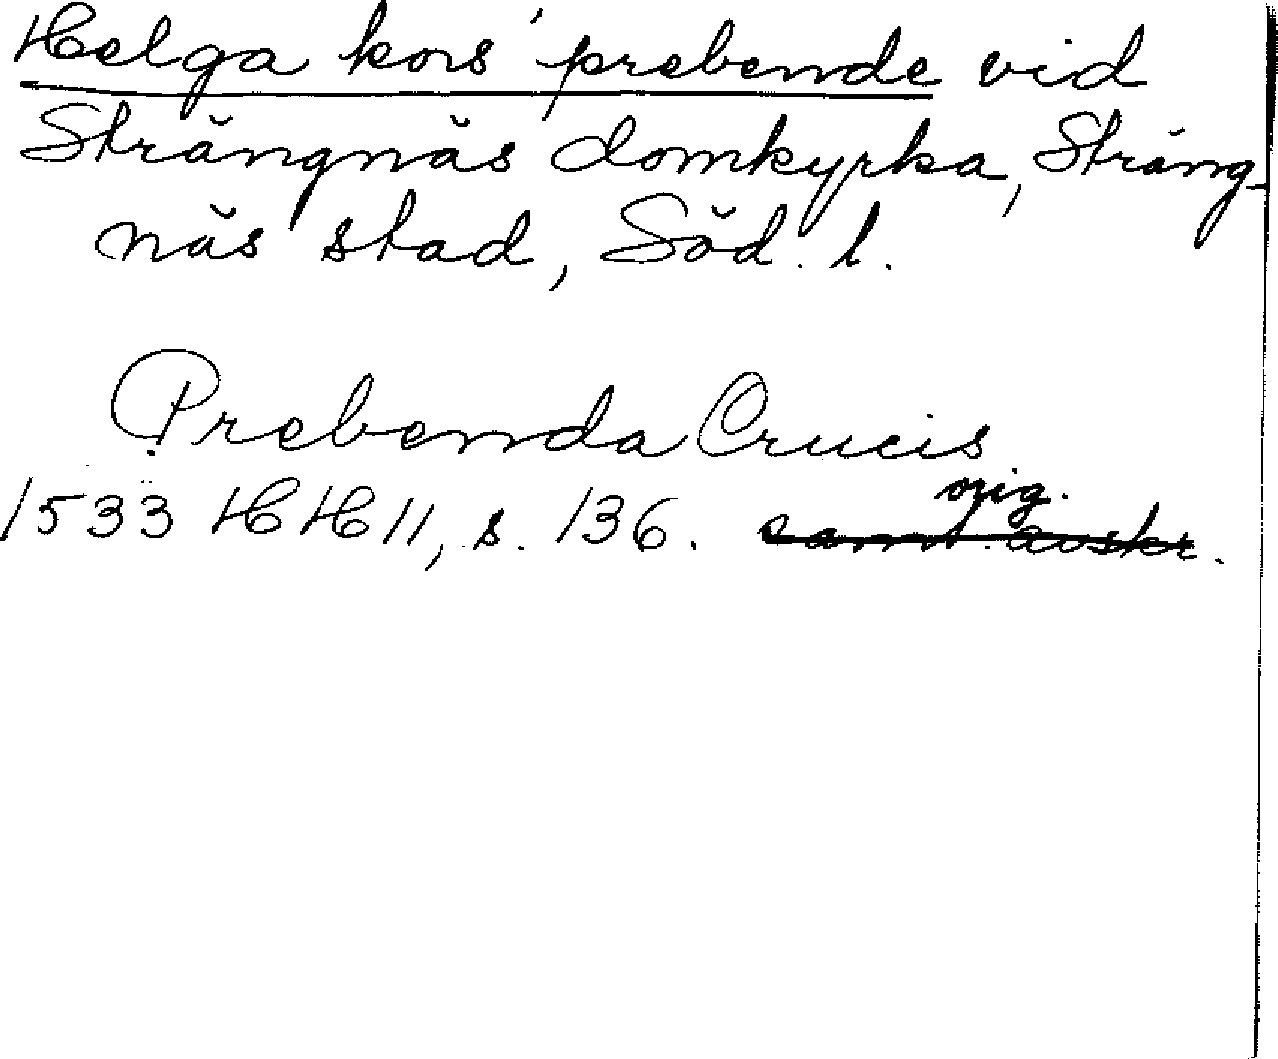 Helga kors' prebende vid
Strängnäs domkyrka, Sträng-
näs stad, Söd. l.
Prebenda Crucis
orig.
1533 HH 11, s. 136. samt. avskr.